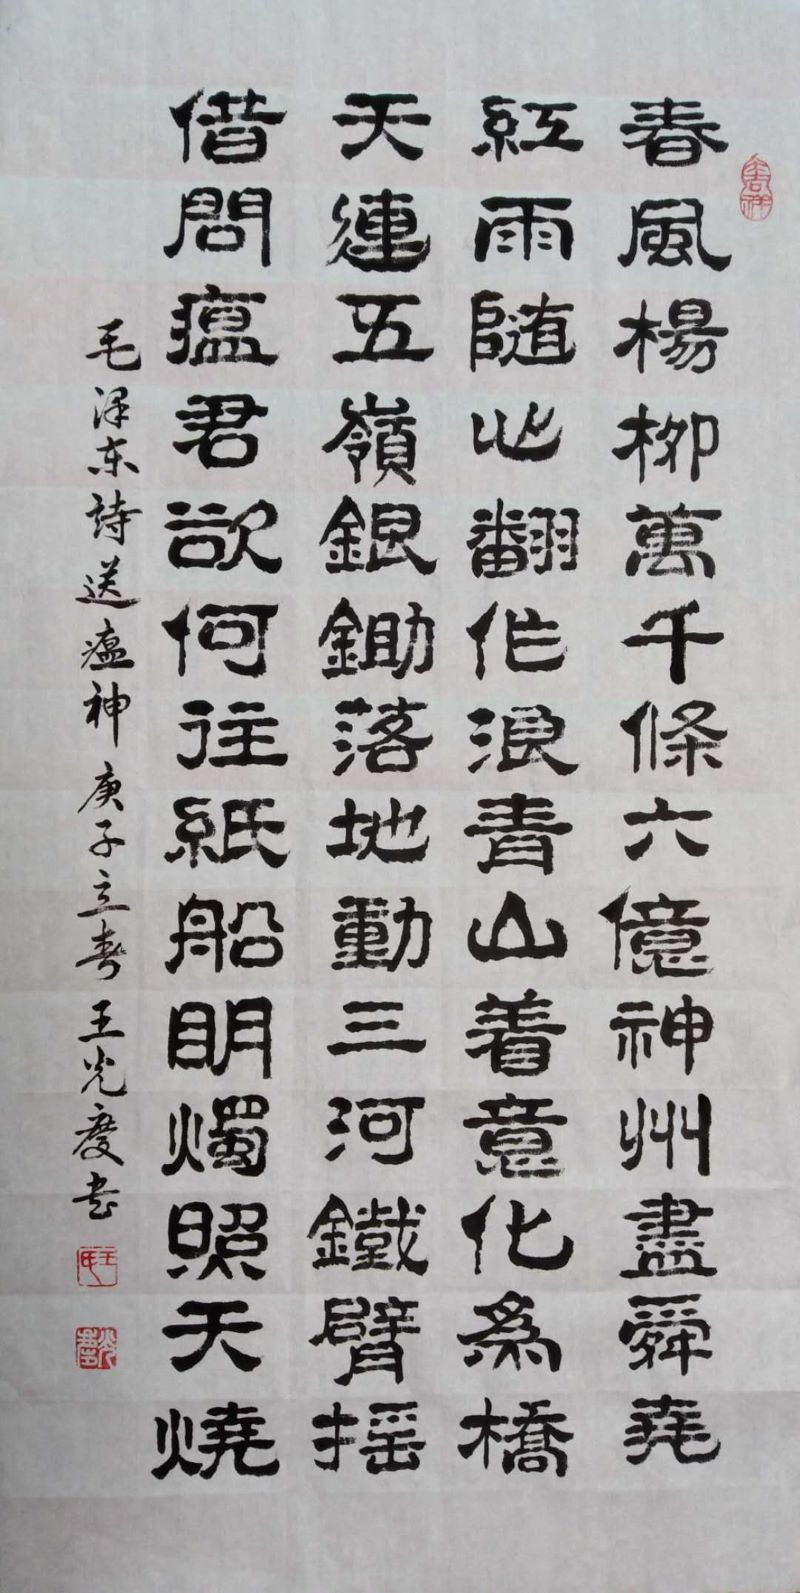 春風楊柳萬千條六億神州盡舜堯
紅雨隨心翻作浪青山着意化為橋
天連五嶺銀鋤落地動三河鐵臂揺
借問瘟君欲何往紙船明燭照天燒
毛泽东詩送瘟神庚子立春王光慶书